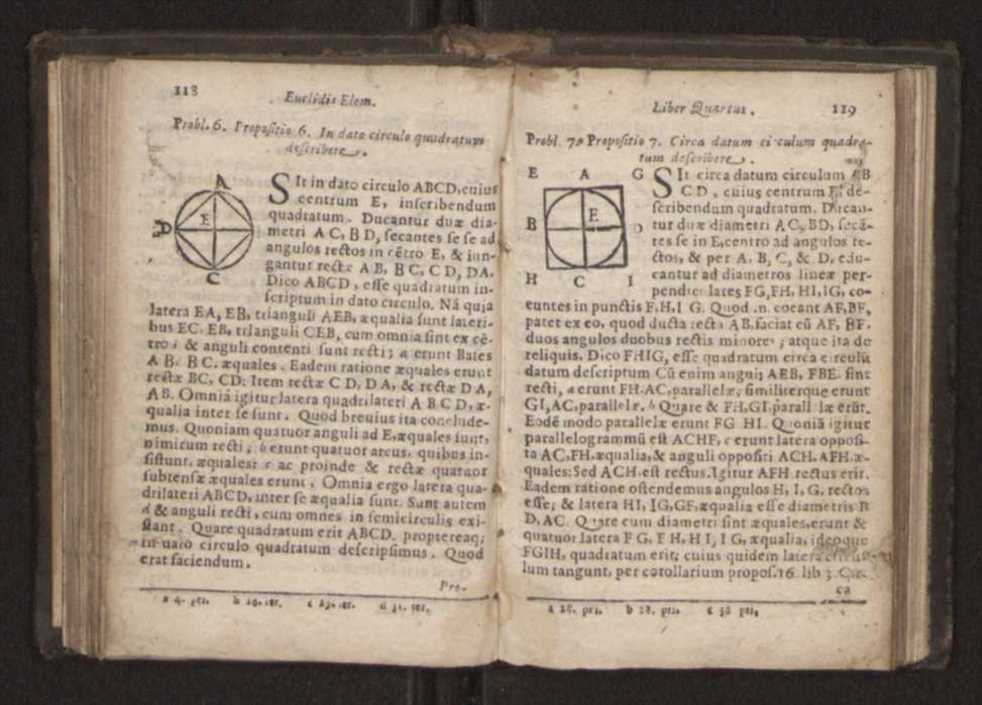 118
Euclidis Elem.
Probl. 6. Propositio 6. In dato circulo quadratum
describere.
A
E
D
C
SIt in dato circulo ABCD, cuius
centrum E, inscribendum
quadratum. Ducantur duæ dia-
metri A C, B D, secantes se se ad
angulos rectos in cẽtro E, & iun-
gantur rectæ A B, B C, C D, DA.
Dico ABCD, esse quadratum in-
scriptum in dato circulo. Nã quia
latera EA, EB, trianguli AEB, æqualia sunt lateri-
bus EC, EB, trianguli CEB, cum omnia sint ex cẽ-
tro; & anguli contenti sunt recti; a erunt Bases
A B, B C, æquales. Eadem ratione æquales erunt
rectæ BC, CD; Item rectæ C D, D A, & rectæ D A,
AB. Omniã igitur latera quadrilateri A B C D, æ-
qualia inter se sunt. Quod breuius ita conclude-
mus. Quoniam quatuor anguli ad E, æquales sunt,
nimirum recti; b erunt quatuor arcus, quibus in-
sistunt, æquales: c ac proinde & rectæ quatuor
subtensæ æquales erunt. Omnia ergo latera qua-
drilateri ABCD, inter se æqualia sunt. Sunt autem
d & anguli recti, cum omnes in semicirculis exi-
stant. Quare quadratum erit ABCD. propterea
circulo quadratum descripsimus. Quod
erat faciendum.
Pro-
a 4. pri. b 26. ter. c 29. ter. d 31. ter.
Liber Quartus.
119
Probl. 7. Propositio 7. Circa datum circulum quadra-
tum describere.
E A G
B E D
H C I
SIt circa datum circulum AB
C D, cuius centrum E, de-
scribendum quadratum. Ducan-
tur duæ diametri A C, BD, secã-
tes se in E, centro ad angulos re-
ctos, & per A, B, C, & D, edu-
cantur ad diametros lineæ per-
pendiculares FG, FH, HI, IG, co-
euntes in punctis F, H, I G. Quod .n. coeant AF, BF,
patet ex eo, quod ducta recta AB, faciat cũ AF, BF,
duos angulos duobus rectis minores; atque ita de
reliquis. Dico FHIG, esse quadratum circa circulũ
datum descriptum Cũ enim anguli AEB, FBE, sint
recti, a erunt FH, AC, parallelæ; similiterque erunt
GI, AC, parallelæ. b Quare & FH, GI, parallelæ erũt.
Eodẽ modo parallelæ erunt FG HI. Quoniã igitur
parallelogrammũ est ACHF, c erunt latera opposi-
ta AC, FH, æqualia, & anguli oppositi ACH, AFH, æ-
quales: Sed ACH, est rectus. Igitur AFH rectus erit.
Eadem ratione ostendemus angulos H, I, G, rectos
esse; & latera HI, IG, GF, æqualia esse diametris B
D, AC. Quare cum diametri sint æquales, erunt &
quatuor latera F G, F H, H I, I G, æqualia, ideoque
FGIH, quadratum erit; cuius quidem latera
lum tangunt, per corollarium propos. 16. lib 3.
ca
a 28. pri. b 28. pri. c 38 pri,